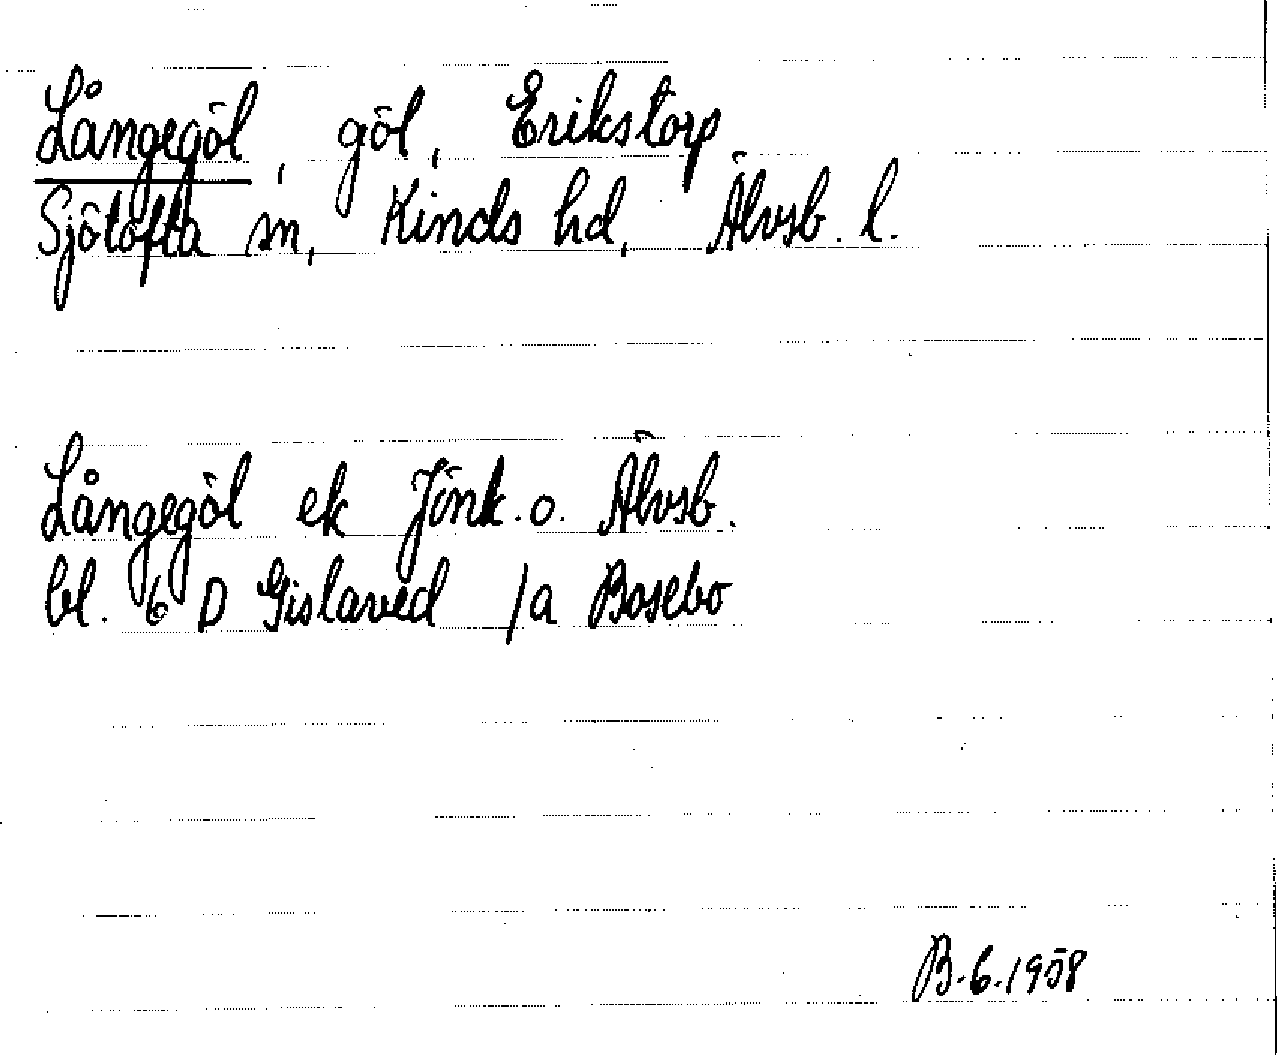 Långegöl, göl, Erikstorp
Sjötofta sn, Kinds hd, Älvsb. l.
Långegöl ek Jönk. o. Älvsb.
bl. 6 D Gislaved /a Bosebo
B.6.1958